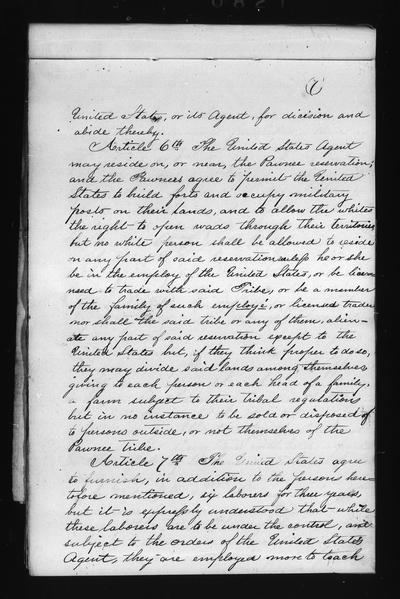 United States, or its Agent, for dicision and
abide thereby.
Article 6th The United States Agent
may reside on, or near, the Pawnee reservation;
and the Pawnees agree to permit the United
States to build forts and occupy military
posts on their lands, and to allow the whites
the right to open roads through their territories
but no white person shall be allowed to reside
n any part of said reservation unless he or she
be in the employ of the United States, or be licen
need to trade with said Tribe, or be a member
of the family of such employé, or licensed trader
nor shall the said tribe or any of them, alien-
ate any part of said reservation except to the
United States but, if they think proper to do so,
they may divide said lands among themselves
giving to each person or each head of a family,
a farm subject to their tribal regulations
but in no instance to be sold or disposed of
to persons outside, or not themselves of the
Pawnee tribe.
Article 7th The United States agree
to furnish, in addition to the persons here-
tofore mentioned, six laborers for three years,
but it is expressly understood that while
these laborers are to be under the control, and
subject to the orders of the United States
Agent, they are employed more to teach